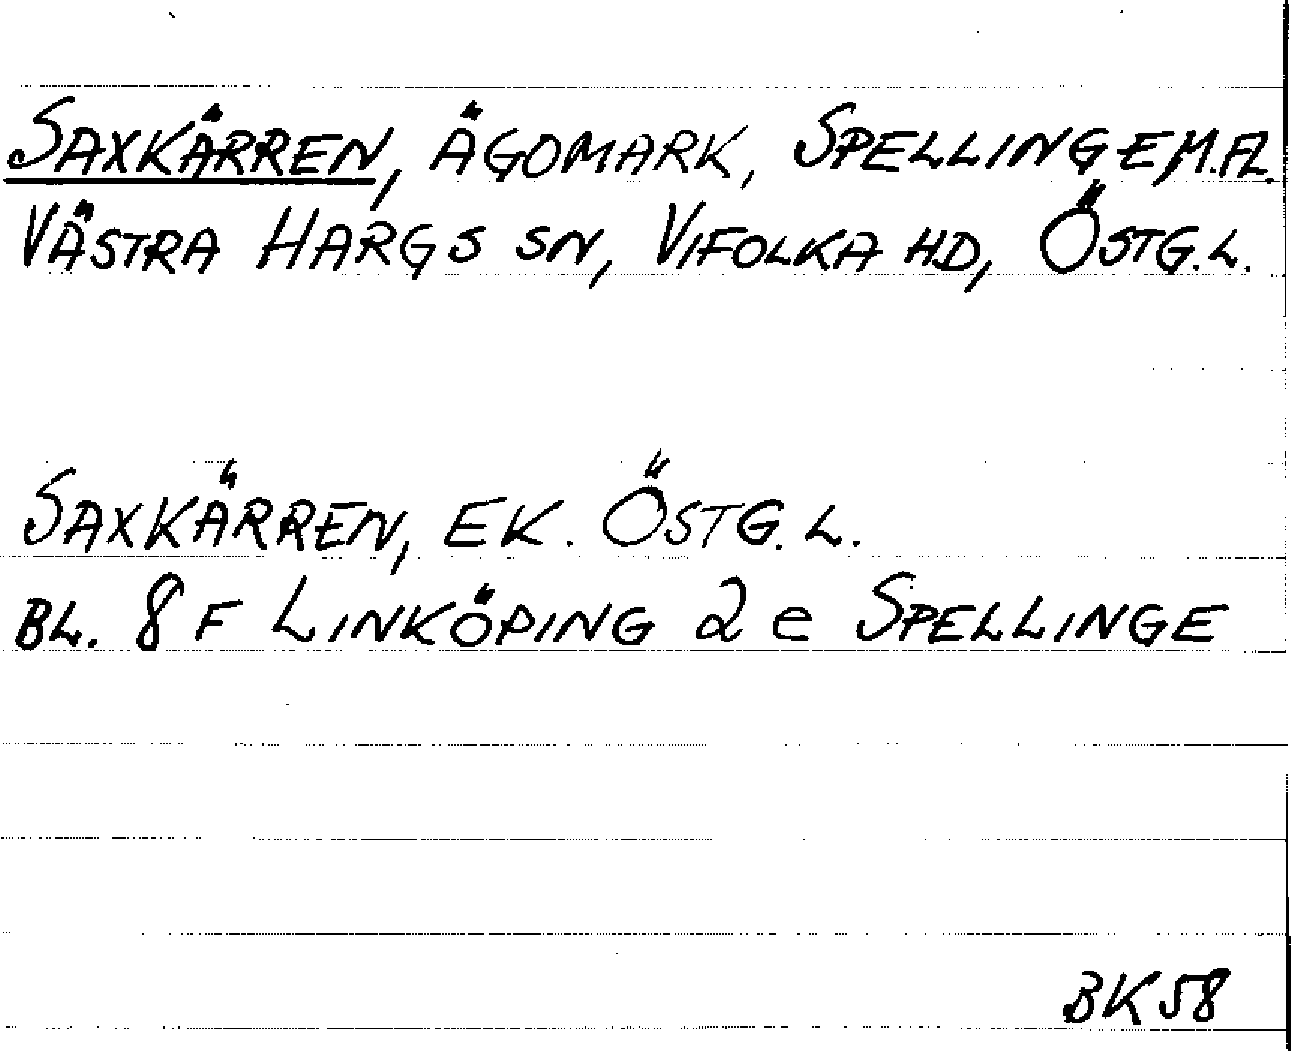 SAXKÄRREN, ÄGOMARK, SPELLINGE M.FL.
VÄSTRA HARGS SN, VIFOLKA HD, ÖSTG.L.
SAXKÄRREN, EK. ÖSTG.L.
BL. 8 F LINKÖPING 2 e SPELLINGE
BK58